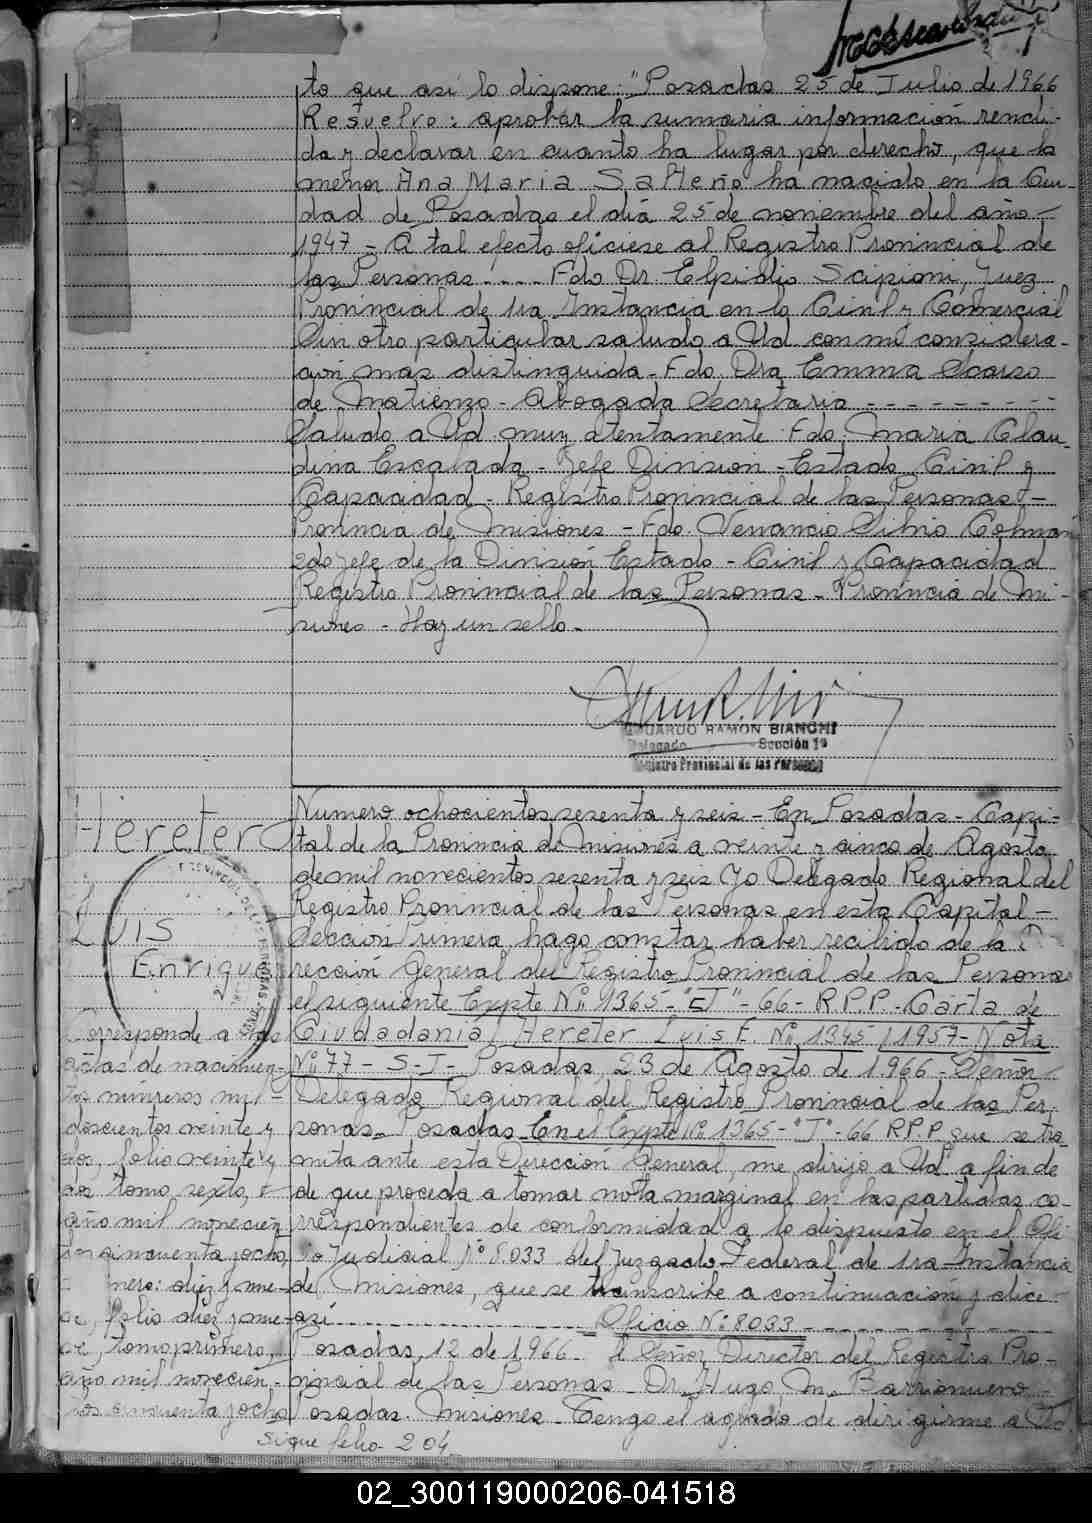 to que asi lo dispone: "Posadas 25 de Julio de 1966
Resuelvo: aprobar la sumaria información rendi-
da y declarar en cuanto ha lugar por derecho, que la
menor Ana Maria Sa ha nacido en la Ciu-
dad de Posadas el dia 25 de noviembre del año
1947 - A tal efecto oficiese al Registro Provincial de
las Personas ---- Fdo Dr. Elpidio Scipioni, Juez
Provincial de 1ra Instancia en lo Civil y Comercial
Sin otro particular saludo a Ud con mi considera-
ción mas distinguida - Fdo. Dra Emma Scarso
de Matienzo - Abogada Secretaria ---------
Saludo a Ud muy atentamente Fdo: Maria Clau-
dina Escalada - Jefe Division - Estado Civil y
Capacidad - Registro Provincial de las Personas -
Provincia de Misiones - Fdo. Venancio Silvio Colman
2do Jefe de la División Estado - Civil y Capacidad
Registro Provincial de las Personas - Provincia de Mi-
siones - Hay un sello -
EDUARDO RAMON BIANCHI
Delegado Sección 1ª
Registro Provincial de las Personas
Herete
Luis
Enrique
Corresponde a las
actas de nacimien-
tos números mil
doscientos veinte y
dos, folio veinte y
dos tomo sexto,
año mil novecien
tos cincuenta y ocho,
mero: diez y nue-
ve, folio diez y nue-
ve, tomo primero,
año mil novecien-
tos cincuenta y ocho
Numero ochocientos sesenta y seis - En Posadas - Capi-
tal de la Provincia de Misiones a veinte y cinco de Agosto
de mil novecientos sesenta y seis Yo Delegado Regional del
Registro Provincial de las Personas en esta Capital -
Sección Primera, hago constar haber recibido de la Di
rección General del Registro Provincial de las Personas
el siguiente Expte Nº 1365 - "J" - 66 - R.P.P. - Carta de
Ciudadania / Hereter Luis E. Nº 1345 / 1957 - Nota
Nº 77 - S - J - Posadas, 23 de Agosto de 1.966 - Señor
Delegado Regional del Registro Provincial de las Per
sonas - Posadas - En el Expte Nº 1365 - "J" - 66 R.P.P que se tra-
mita ante esta Dirección General, me dirijo a Ud a fin de
de que proceda a tomar nota marginal en las partidas co-
rrespondientes de conformidad a lo dispuesto en el Ofi-
cio Judicial Nº 8033 del Juzgado Federal de 1ra Instancia
de Misiones, que se transcribe a continuación y dice
asi ---------------- Oficio Nº 8033 ----------------
Posadas, 12 de 1.966 - Al Señor Director del Registro Pro-
vincial de las Personas - Dr. Hugo M. Barrionuevo -
Posadas. Misiones - Tengo el agrado de dirigirme a Ud
Sigue folio - 204
02_300119000206-041518